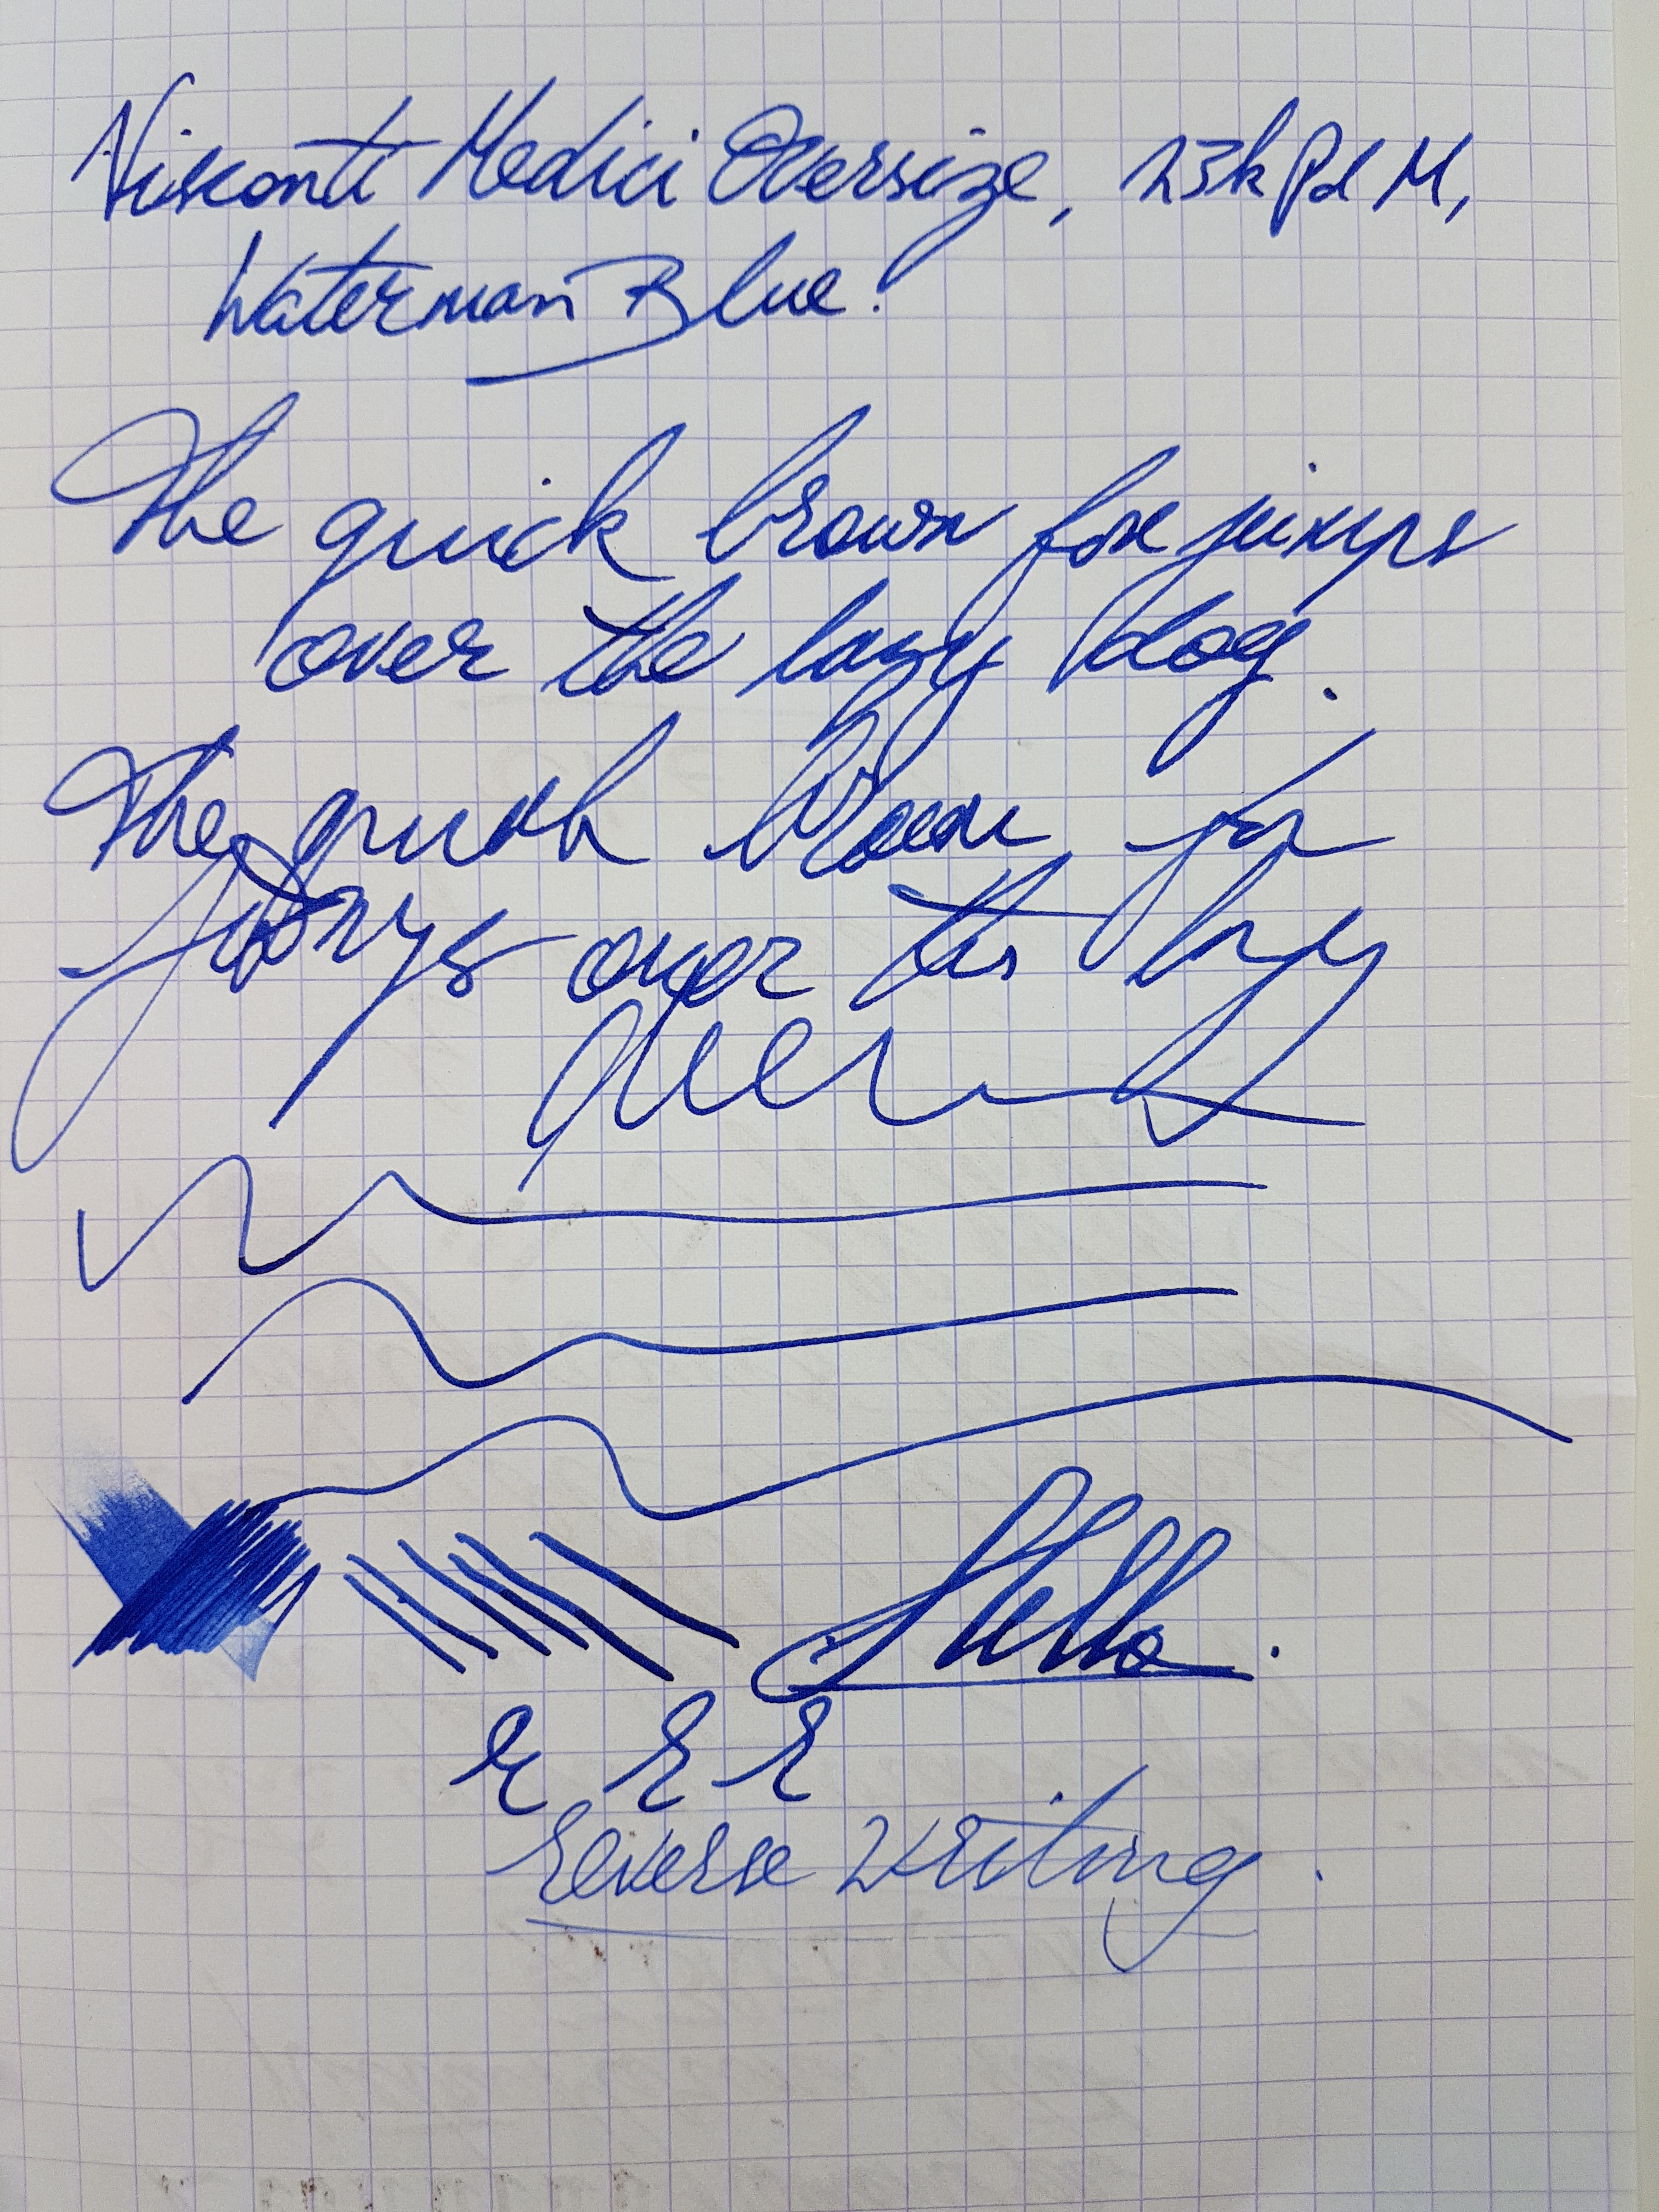 Viskonti Medici Oversize, 23k Pd M,
Waterman Blue!
The quick brown fox jumps
over the lazy dog.
The quick brown fox
jumps over the lazy
Hello.
e E E
Reverse Writing.